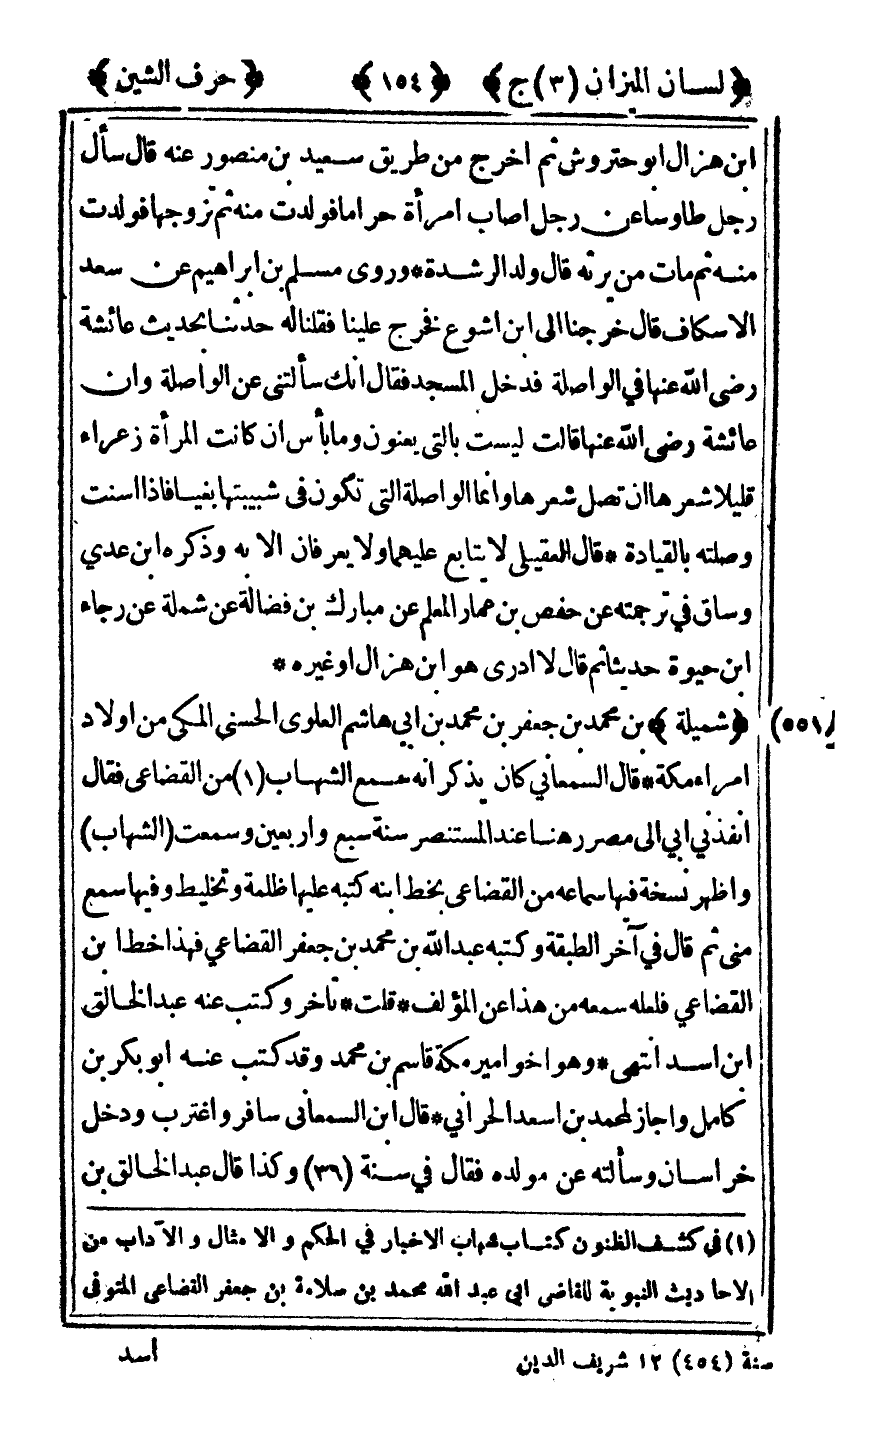 ﴿ لسان الميزان (٣) ج ﴾ ﴿ ١٥٤ ﴾ ﴿ حرف الشين ﴾
ابن هزال ابو حتروش ثم اخرج من طريق سعيد بن منصور عنه قال سأل
رجل طاوسا عن رجل اصاب امرأة حراما فولدت منه ثم تزوجها فولدت
منه ثم مات من يرثه قال ولد الرشدة * وروى مسلم بن ابراهيم عن سعد
الاسكاف قال خرجنا الى ابن اشوع فخرج علينا فقلنا له حدثنا بحديث عائشة
رضى الله عنها في الواصلة فدخل المسجد فقال انك سألتنى عن الواصلة وان
عائشة رضى الله عنها قالت ليست بالتى يعنون وما بأس ان كانت المرأة زعراء
قليلا شعرها ان تصل شعرها وانما الواصلة التى تكون فى شبيبتها بغيا فاذا اسنت
وصلته بالقيادة * قال العقيلى لا يتابع عليهما ولا يعرفان الا به وذكره ابن عدي
وساق في ترجمته عن حفص بن عمار المعلم عن مبارك بن فضالة عن شملة عن رجاء
ابن حيوة حديثا ثم قال لا ادرى هو ابن هزال او غيره *
(٥٥١) ﴿ شميلة ﴾ بن محمد بن جعفر بن محمد بن ابي هاشم العلوى الحسنى المكى من اولاد
امراء مكة * قال السمعاني كان يذكر انه سمع الشهاب (١) من القضاعى فقال
انفذني ابي الى مصر رهنا عند المستنصر سنة سبع واربعين وسمعت (الشهاب)
واظهر نسخة فيها سماعه من القضاعى بخط ابنه كتبه عليها ظلمة وتخليط وفيها سمع
منى ثم قال في آخر الطبقة وكتبه عبد الله بن محمد بن جعفر القضاعي فهذا خطا بن
القضاعي فلعله سمعه من هذا عن المؤلف * قلت * تأخر وكتب عنه عبد الخالق
ابن اسد انتهى * وهو اخو امير مكة قاسم بن محمد وقد كتب عنه ابو بكر بن
كامل واجاز لمحمد بن اسعد الحراني * قال ابن السمعانى سافر واغترب ودخل
خراسان وسألته عن مولده فقال في سنة (٣٦) وكذا قال عبد الخالق بن
(١) في كشف الظنون كتاب شهاب الاخبار في الحكم و الا مثال و الآداب من
الاحا ديث النبو ية للقاضى ابى عبد الله محمد بن سلامة بن جعفر القضاعى المتوفى
سنة (٤٥٤) ١٢ شريف الدين
أسد